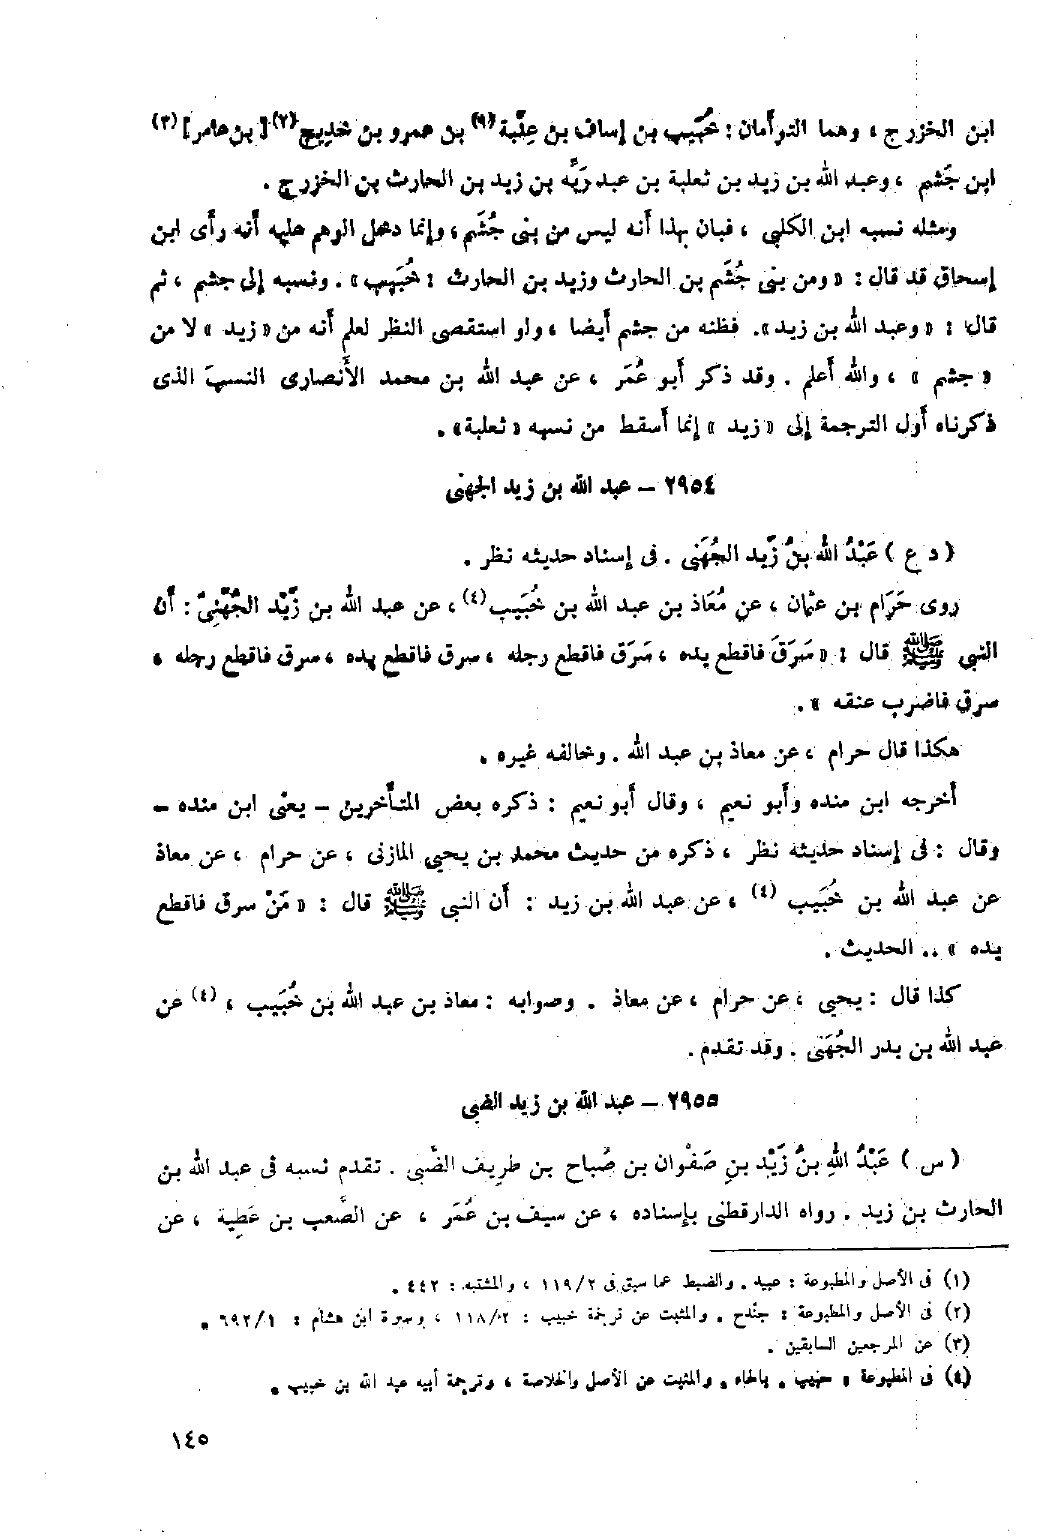 ابن الخزرج ، وهما التوأمان : خُبَيب بن إساف بن عِنَبة (١) بن عمرو بن خديج (٢) [ بن عامر ] (٣)
ابن جُشَم ، وعبد الله بن زيد بن ثعلبة بن عبد رَبِّه بن زيد بن الحارث بن الخزرج .
ومثله نسبه ابن الكلبى ، فبان بهذا أنه ليس من بنى جُشَم ، وإنما دخل الوهم عليه أنه رأى ابن
إسحاق قد قال : « ومن بنى جُشَم بن الحارث وزيد بن الحارث : خُبَيب » . ونسبه إلى جشم ، ثم
قال : « وعبد الله بن زيد ». فظنه من جشم أيضا ، ولو استقصى النظر لعلم أنه من « زيد » لا من
« جشم » ، والله أعلم . وقد ذكر أبو عُمَر ، عن عبد الله بن محمد الأنصارى النسب الذى
ذكرناه أول الترجمة إلى « زيد » إنما أسقط من نسبه « ثعلبة» .
٢٩٥٤ – عبد الله بن زيد الجهنى
( د ع ) عَبْدُ الله بنُ زَيد الجُهَنى . فى إسناد حديثه نظر .
روى حَرَام بن عثمان ، عن مُعَاذ بن عبد الله بن خُبَيب (٤) ، عن عبد الله بن زَيْد الجُهَنِىّ : أن
النبى ﷺ قال : « سَرَقَ فاقطع يده ، سَرَق فاقطع رجله ، سرق فاقطع يده ، سرق فاقطع رجله ،
سرق فاضرب عنقه » .
هكذا قال حرام ، عن معاذ بن عبد الله . وخالفه غيره .
أخرجه ابن منده وأبو نعيم ، وقال أبو نعيم : ذكره بعض المتأخرين – يعنى ابن منده –
وقال : فى إسناد حديثه نظر ، ذكره من حديث محمد بن يحيى المازنى ، عن حرام ، عن معاذ
عن عبد الله بن خُبَيب (٤) ، عن عبد الله بن زيد : أن النبى ﷺ قال : « مَنْ سرق فاقطع
يده » .. الحديث .
كذا قال : يحيى ، عن حرام ، عن معاذ . وصوابه : معاذ بن عبد الله بن خُبَيب ، (٤) عن
عبد الله بن بدر الجُهَنى . وقد تقدم .
٢٩٥٥ – عبد الله بن زيد الضبى
( س ) عَبْدُ اللهِ بنُ زَيْد بنِ صَفْوان بن صُباح بن طريف الضَّبى . تقدم نسبه فى عبد الله بن
الحارث بن زيد . رواه الدارقطنى بإسناده ، عن سيف بن عُمَر ، عن الصَّعب بن عَطِية ، عن
(١) فى الأصل والمطبوعة : عبيد . والضبط عما سبق فى ١١٩/٢ ، والمشتبه : ٤٤٢ .
(٢) فى الأصل والمطبوعة : جندح . والمثبت عن ترجمة خبيب : ١١٨/٢ ، وسيرة ابن هشام : ٦٩٢/١ .
(٣) عن المرجعين السابقين .
(٤) فى المطبوعة : حبيب . بالحاء . والمثبت عن الأصل والخلاصة ، وترجمة أبيه عبد الله بن خبيب .
١٤٥